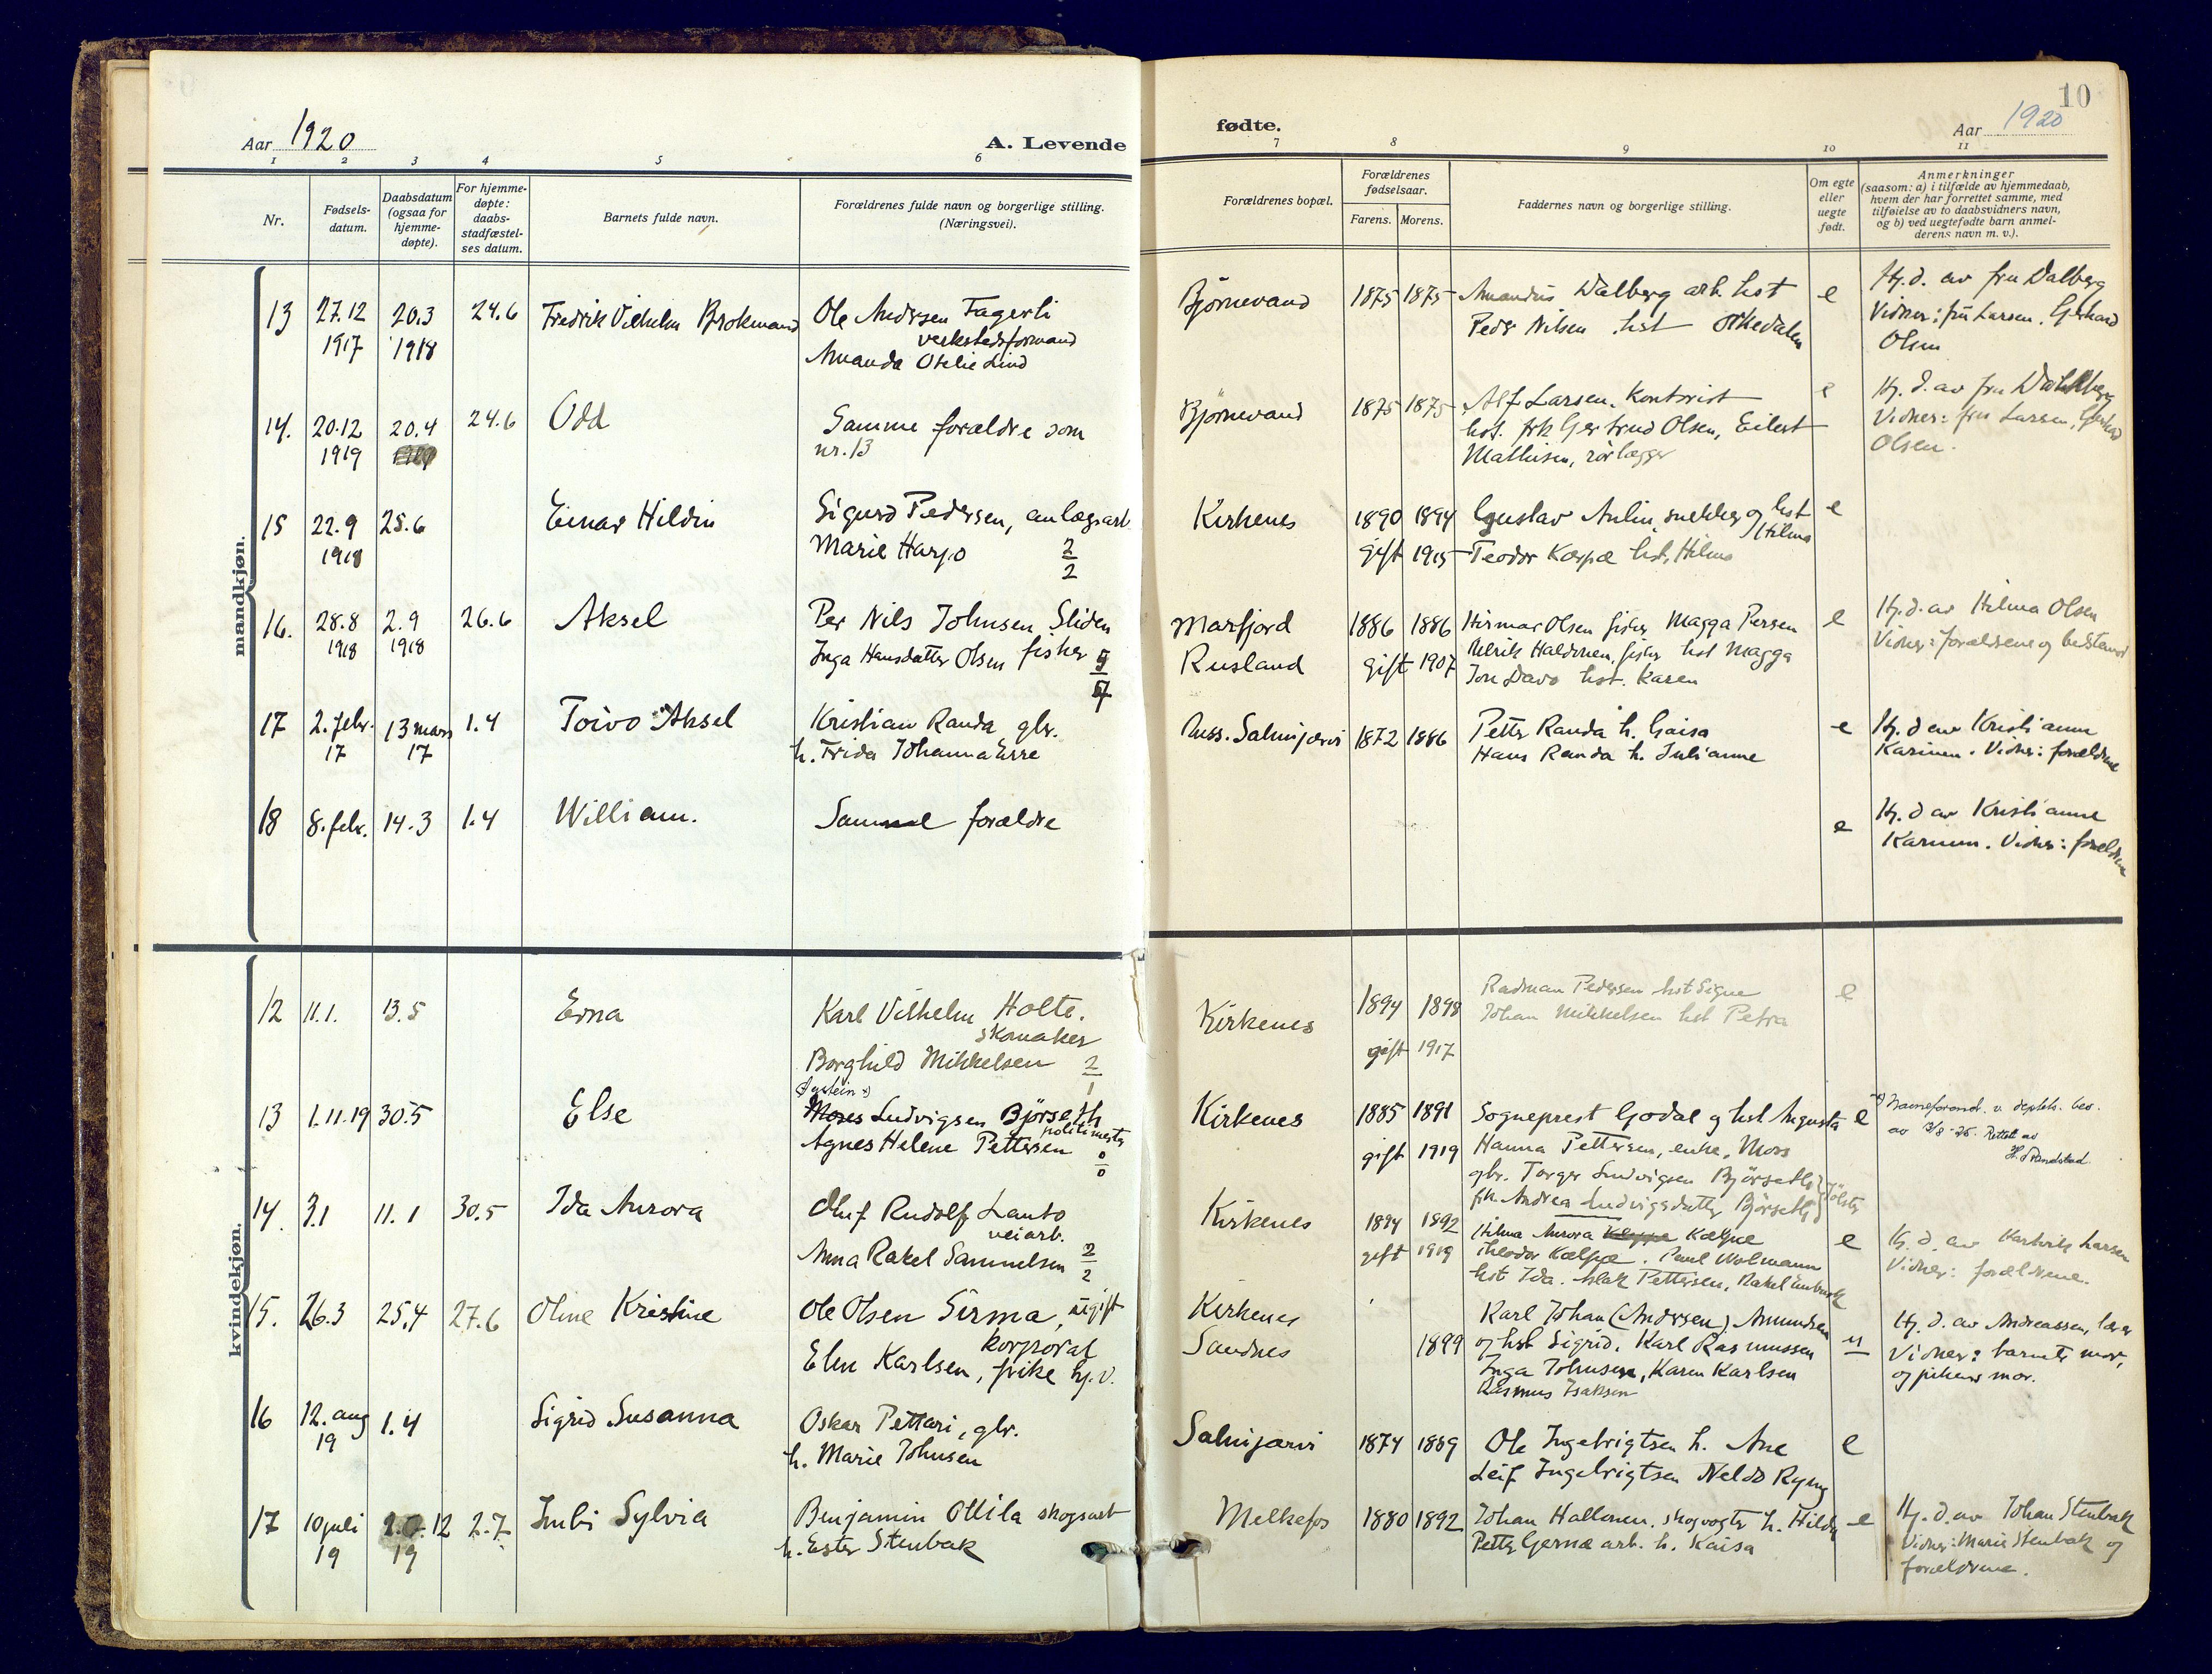 10
Aar 1920
A. Levende
fødte.
Aar 1920
1 2 3 4 5 6 7 8 9 10 11
Nr.
Fødsels-
datum.
Daabsdatum
(ogsaa for
hjemme-
døpte).
For hjemme-
døpte:
daabs-
stadfæstel-
ses datum.
Barnets fulde navn.
Forældrenes fulde navn og borgerlige stilling.
(Næringsvei).
Forældrenes bopæl.
Forældrenes
fødselsaar.
Farens. Morens.
Faddernes navn og borgerlige stilling.
Om egte
eller
uegte
født.
Anmerkninger
(saasom: a) i tilfælde av hjemmedaab,
hvem der har forrettet samme, med
tilføielse av to daabsvidners navn,
og b) ved uegtefødte barn anmel-
derens navn m. v.).
mandkjøn.
13 27.12 20.3 24.6 Fredrik Vilhelm Brokmand Ole Andersen Fagerli
1917 1918 verkstedsformand
Amanda Otelie Lind
Bjørnevand 1875 1875 Amandus Dalberg arb. hst e
Peder Nilsen hst Orkedalen
Hj.d. av fru Dalberg
Vidner: fru Larsen, Gerhard
Olsen
14. 20.12 20.4 24.6 Odd Samme forældre som
1919 nr. 13
Bjørnevand 1875 1875 Alf Larsen, Kontorist e
hst. frk Gertrud Olsen, Eilert
Mathisen, rørlægger
Hj.d. av fru Dahlberg
Vidner: fru Larsen, Gerhard
Olsen.
15 22.9 25.6 Einar Hildin Sigurd Pedersen, anlægsarb.
1918 Marie Harjo 2/2
Kirkenes 1890 1894 Gustav Aulin, snekker og hst e
Hilma
gift 1915 Teodor Kærpæ hst, Hilma
16. 28.8 2.9 26.6 Aksel Per Nils Johnsen Sliden
1918 1918 Inga Hansdatter Olsen fisker
Marfjord 1886 1886 Hirmar Olsen fisker Magga Persen e
Rusland gift 1907 Ulrik Haldonen, fisker hst Magga
Jon Davo hst. Karen
Hj.d. av Hilma Olsen
Vidner: forældrene og bedstemor
17 2. febr. 13 mars 1.4 Toivo Aksel Kristian Randa gbr.
17 17 h. Frida Johanna Erre
Russ. Salmijærvi 1872 1886 Petter Randa h. Gaisa e
Hans Randa h. Julianne
Hj.d av Kristianne
Karinen. Vidner: forældrene
18 8. febr. 14.3 1.4 William. Samme forældre
e
Hj.d av Kristianne
Karinen. Vidner: forældrene
kvindekjøn.
12 11.1. 13.5 Erna Karl Vilhelm Holte.
skomaker
Borghild Mikkelsen 2/1
Kirkenes 1894 1898 Radman Pedersen hst Signe e
Johan Mikkelsen hst Petra
gift 1917
13 1.11.19 30.5 Else Øystein x)
Moses Ludvigsen Bjørseth
politimester
Agnes Helene Pettersen 0/0
Kirkenes 1885 1891 Sogneprest Godal og hst. Augusta e
gift 1919 Hanna Pettersen, enke, Moss
gbr. Torger Ludvigsen Bjørseth
frk. Andrea Ludvigsdatter Bjørseth Jölster
x) Navneforand. v. deptets. bev.
av 3/8-25. Rettet av
H. Strandstad.
14. 3.1 11.1 30.5 Ida Aurora Oluf Rudolf Lanto
veiarb.
Anna Rakel Samuelsen 2/2
Kirkenes 1894 1892 Hilma Aurora Kælpæ e
gift 1919 Theodor Kælpæ. Paul Wolmann
hst Ida. Islak Pettersen, Rakel
Hj.d. av Larsen
Vidner: forældrene.
15. 26.3 25.4 27.6 Oline Kristine Ole Olsen Sirma, ugift
korporal
Elen Karlsen, pike hj.v.
Kirkenes
Sandnes 1899
Karl Johan (Andersen) Amundsen
og hst Sigrid. Karl Rasmussen u
Inga Johnsen, Karen Karlsen
Rasmus Isaksen
Hj.d. av Andreassen, lærer
Vidner: barnets mor,
og pikens mor.
16 12. aug 1.4 Sigrid Susanna Oskar Pettari, gbr.
19 h. Marie Johnsen
Salmijærvi 1874 1889 Ole Ingebrigtsen h. Ane e
Leif Ingebrigtsen Neldo Ryeng
17 10 juli 12 2.7 Imbi Sylvia Benjamin Ottila skogsarb
19 19 h. Ester Stenbak
Melkefos 1880 1892 Johan Hallonen, skogvogter h. Hilda e
Petter Gernæ arb. h. Kaisa
Hj.d. av Johan Stenbak
Vidner: Marie Stenbak og
forældrene.